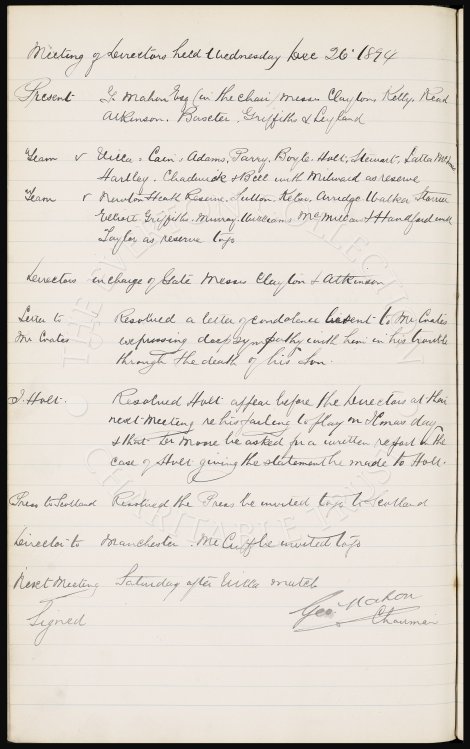 Meeting of Directors held Wednesday Dec 26th 1894
Present G. Mahon Esq (in the chair) Messrs Clayton, Kelly, Read
Atkinson, Baxter, Griffiths & Leyland
Team v Villa: Cain, Adams, Parry, Boyle, Holt, Stewart, Latta McInnes
Hartley, Chadwick & Bell with Milward as reserve
Team v Newton Heath Reserve, Sutton, Kelso, Arridge, Walker
Elliott, Griffiths, Murray, Williams, McMillan & Handford with
Taylor as reserve to go
Directors in charge of Gate Messrs Clayton & Atkinson
Letter to Resolved a letter of condolence be sent to Mr Coates
Mr Coates expressing deep sympathy with him in his trouble
through the death of his Son.
J. Holt. Resolved Holt appear before the Directors at their
next meeting re his failing to play on Xmas day
& that Dr Moore be asked for a written report in the
case of Holt giving the statement he made to Holt.
Press to Scotland Resolved the Press be invited to go to Scotland
Director to Manchester. Mr Cuff be invited to go
Next Meeting Saturday after Villa match
Signed Geo Mahon
Chairman
THE EVERTON COLLECTION
CHARITABLE TRUST